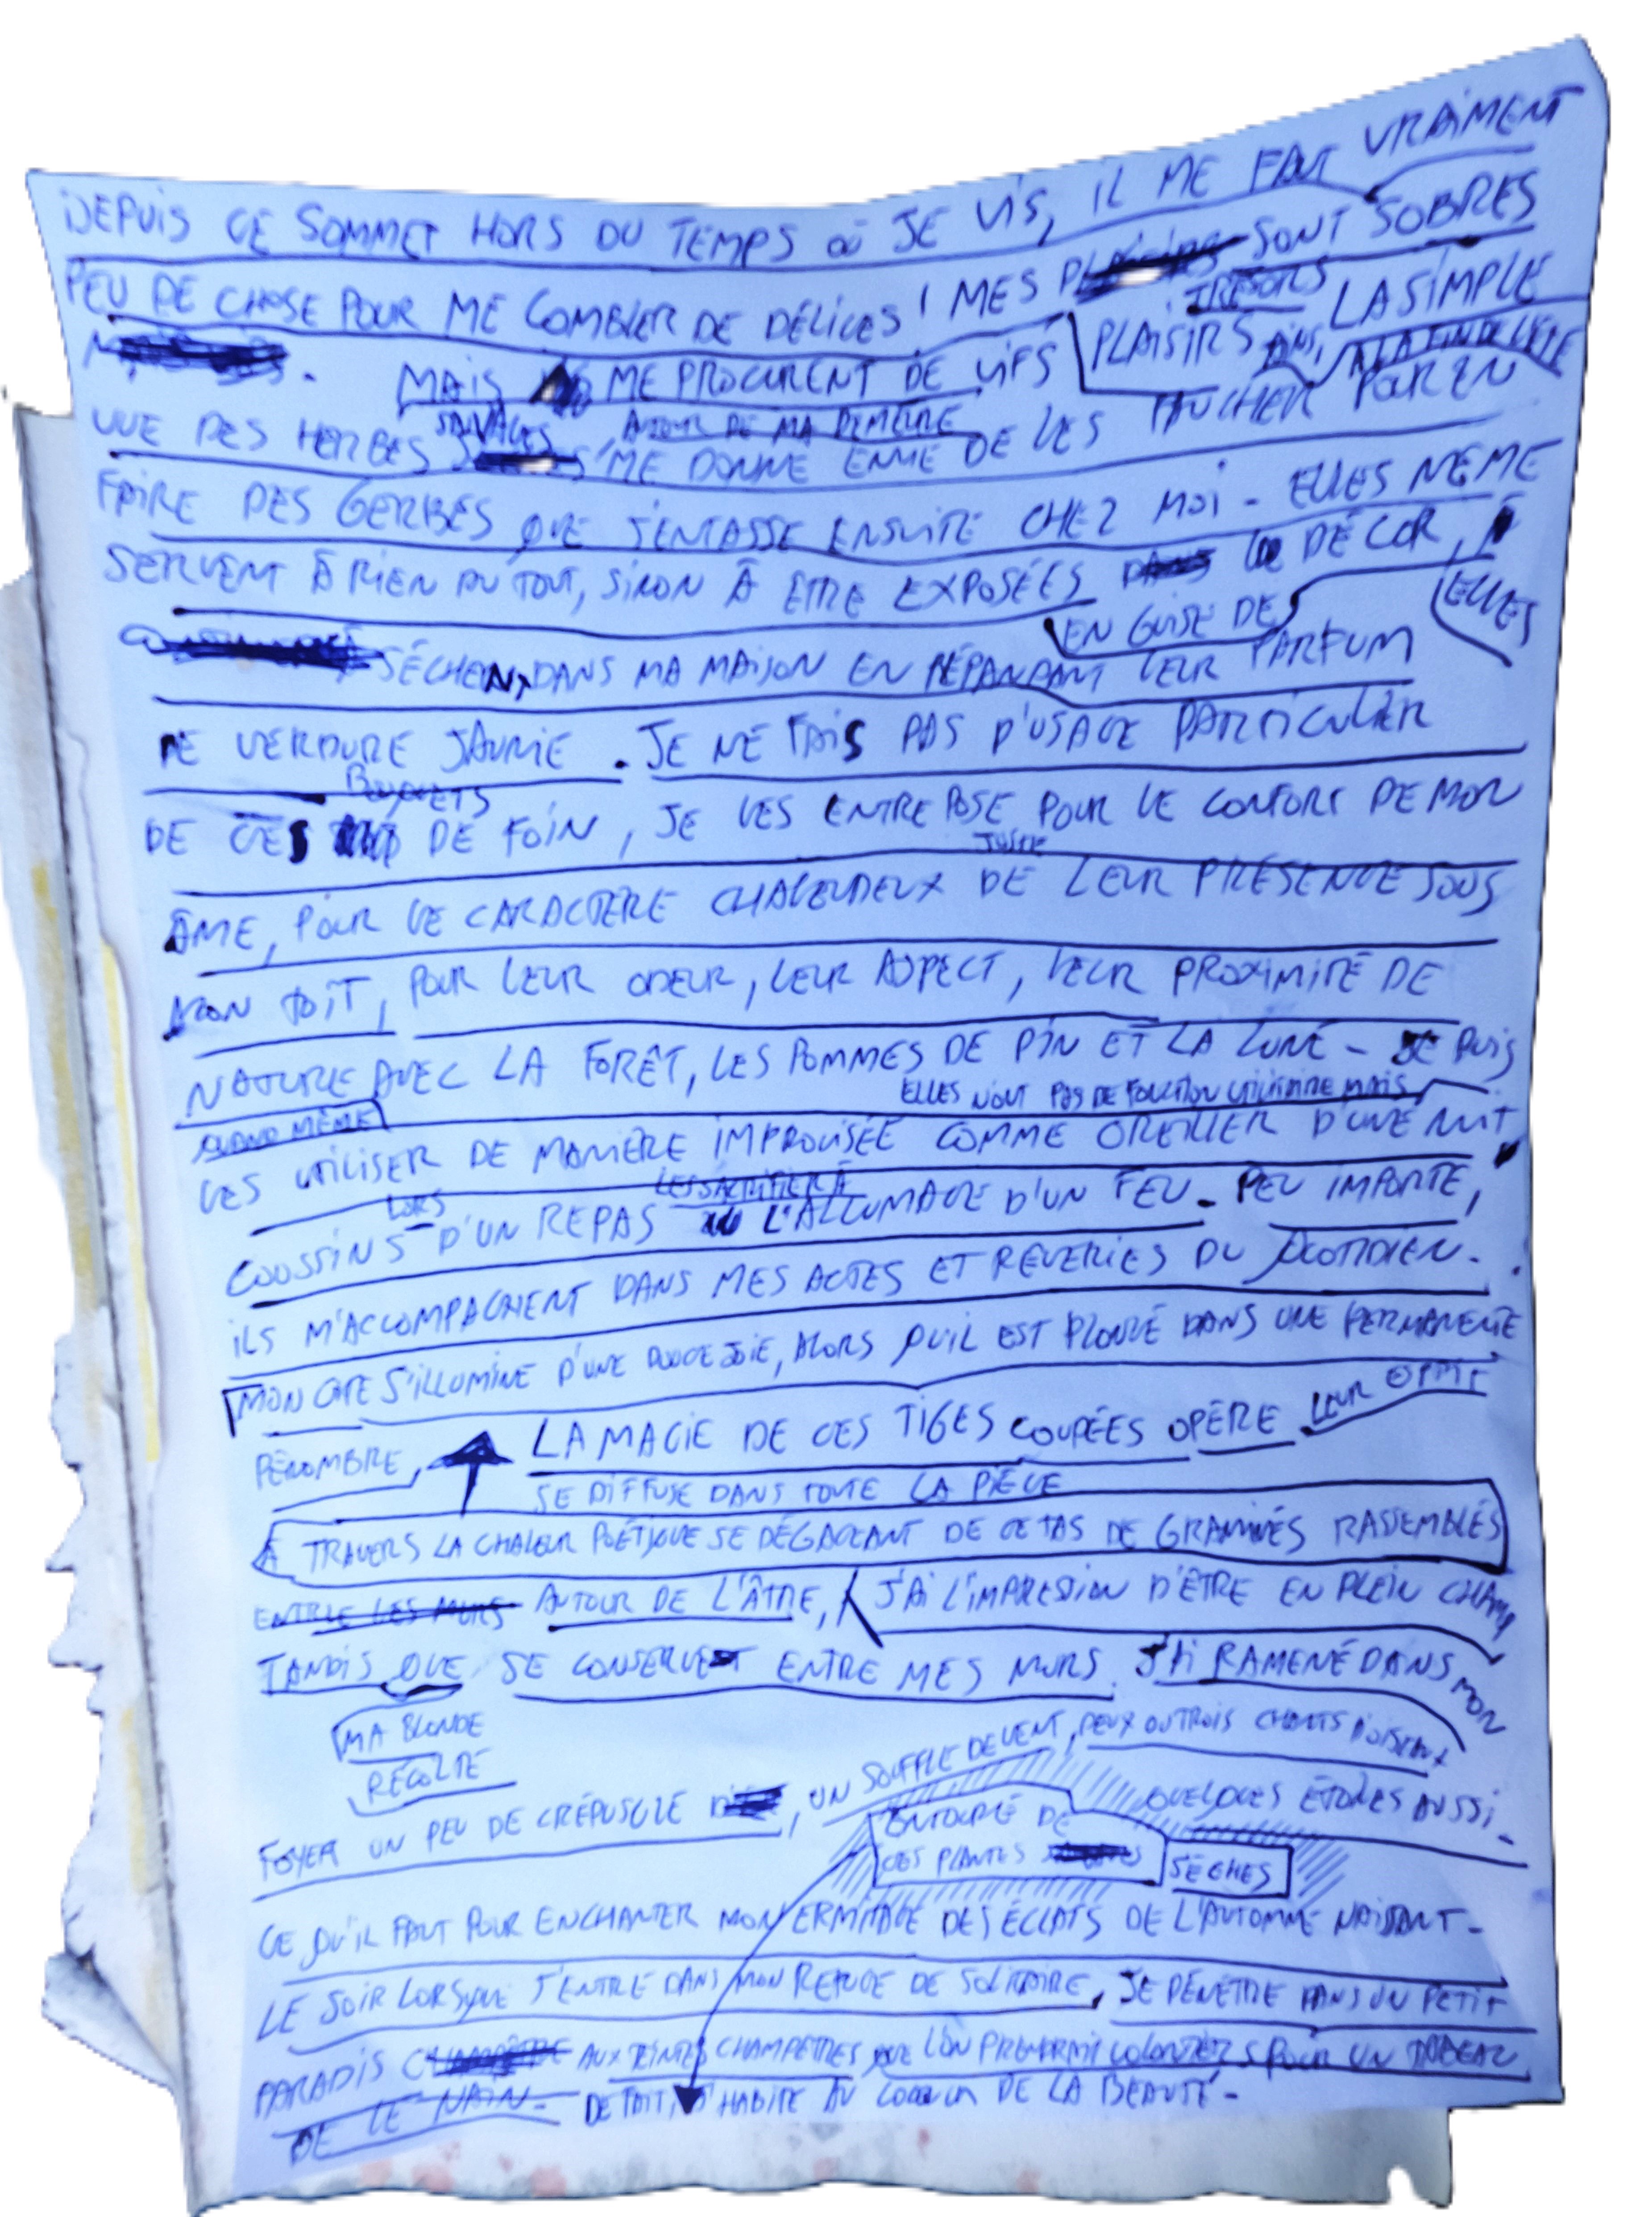 DEPUIS CE SOMMET HORS DU TEMPS OÙ JE VIS, IL ME FAUT VRAIMENT
PEU DE CHOSE POUR ME COMBLER DE DÉLICES ! MES SONT SOBRES
TRÉSORS
PLAISIRS LA SIMPLE
MAIS ME PROCURENT DE VIFS
À LA FIN DE L'ÉTÉ
SAUVAGES AUTOUR DE MA DEMEURE
VUE DES HERBES ME DONNE ENVIE DE LES FAUCHER POUR EN
FAIRE DES GERBES QUE J'ENTASSE ENSUITE CHEZ MOI - ELLES NE ME
SERVENT À RIEN DU TOUT, SINON À ÊTRE EXPOSÉES DÉCOR,
EN GUISE DE
ELLES
SÈCHENT DANS MA MAISON EN RÉPANDANT LEUR PARFUM
DE VERDURE JAUNIE. JE NE FAIS PAS D'USAGE PARTICULIER
BOUQUETS
DE CES DE FOIN, JE LES ENTREPOSE POUR LE CONFORT DE MON
JUSTE
ÂME, POUR LE CARACTÈRE CHALEUREUX DE LEUR PRÉSENCE SOUS
MON TOIT, POUR LEUR ODEUR, LEUR ASPECT, LEUR PROXIMITÉ DE
NATURE AVEC LA FORÊT, LES POMMES DE PIN ET LA LUNE - JE PUIS
ELLES N'ONT PAS DE FONCTION UTILITAIRE MAIS
QUAND MÊME
LES UTILISER DE MANIÈRE IMPROVISÉE COMME OREILLER D'UNE NUIT
LORS LES SACRIFIER À
COUSSINS D'UN REPAS L'ALLUMAGE D'UN FEU. PEU IMPORTE,
ILS M'ACCOMPAGNENT DANS MES ACTES ET RÊVERIES DU QUOTIDIEN.
MON GÎTE S'ILLUMINE D'UNE DOUCE JOIE, ALORS QU'IL EST PLONGÉ DANS UNE PERMANENTE
PÉNOMBRE, LA MAGIE DE CES TIGES COUPÉES OPÈRE LEUR
SE DIFFUSE DANS TOUTE LA PIÈCE
À TRAVERS LA CHALEUR POÉTIQUE SE DÉGAGEANT DE CE TAS DE GRAMINÉS RASSEMBLÉS
ENTRE LES MURS AUTOUR DE L'ÂTRE, J'AI L'IMPRESSION D'ÊTRE EN PLEIN CHAMP
TANDIS QUE SE CONSERVE ENTRE MES MURS. J'AI RAMENÉ DANS MON
MA BLONDE
RÉCOLTE
FOYER UN PEU DE CRÉPUSCULE, UN SOUFFLE DE VENT, DEUX OU TROIS CHANTS D'OISEAUX
QUELQUES ÉTOILES AUSSI -
ENTOURÉ DE
CES PLANTES SÈCHES
CE QU'IL FAUT POUR ENCHANTER MON ERMITAGE DES ÉCLATS DE L'AUTOMNE NAISSANT -
LE SOIR LORSQUE J'ENTRE DANS MON REFUGE DE SOLITAIRE, JE PÉNÈTRE DANS UN PETIT
PARADIS AUX TEINTES CHAMPÊTRES QUE L'ON PRENDRAIT VOLONTIERS POUR UN TABLEAU
DE LE NAIN - DE FAIT, J'HABITE AU DE LA BEAUTÉ -